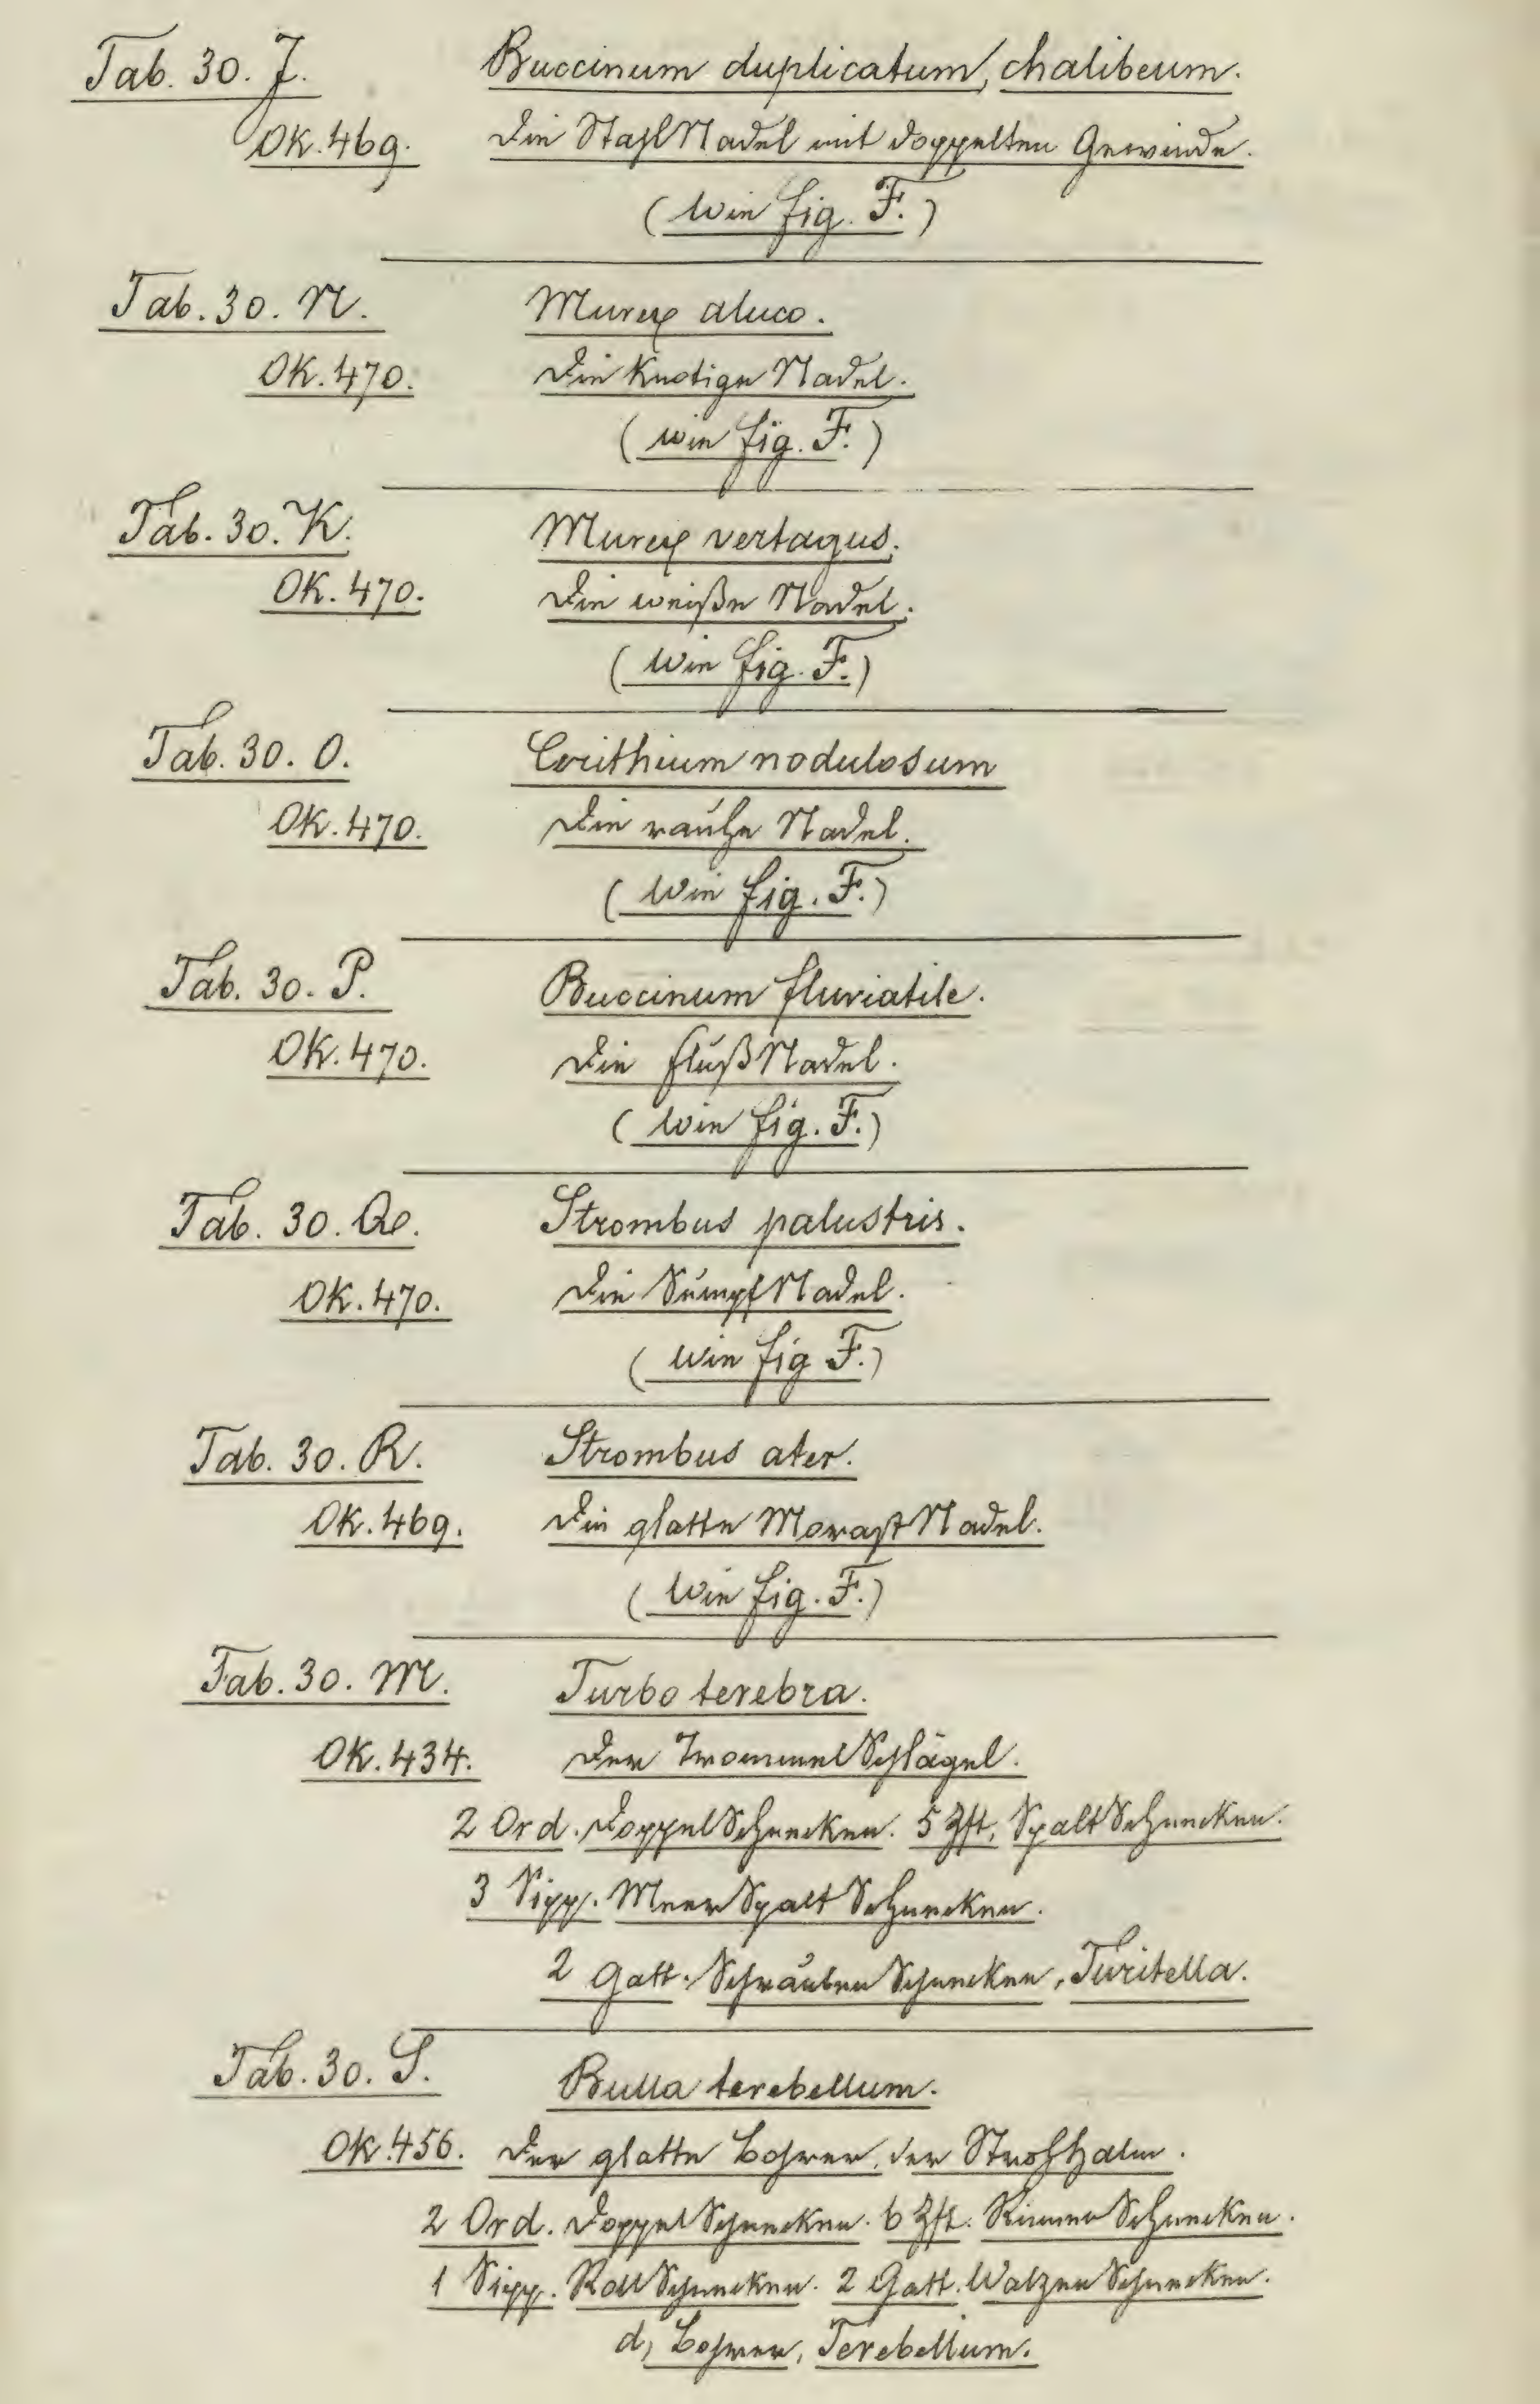 Tab. 30. J. Buccinum duplicatum, chalibeum.
OK. 469. Die StahlNadel mit doppelten Gewinde.
(Wie fig. F.)
Tab. 30. N. Murex aluco.
OK. 470. Die knotige Nadel.
(wie fig. F.)
Tab. 30. K. Murex vertagus.
OK. 470. Die weiße Nadel.
(Wie fig. F.)
Tab. 30. O. Cerithium nodulosum
OK. 470. Die rauhe Nadel.
(Wie fig. F.)
Tab. 30. P. Buccinum fluviatile.
OK. 470. Die flußNadel.
(Wie fig. F.)
Tab. 30. Q. Strombus palustris.
OK. 470. Die SumpfNadel.
(Wie fig F.)
Tab. 30. R. Strombus ater.
OK. 469. Die glatte MorastNadel.
(Wie fig. F.)
Tab. 30. M. Turbo terebra.
OK. 434. Der TrommelSchlägel.
2 Ord. DoppelSchnecken. 5 Zft. SpaltSchnecken.
3 Sipp. MeerSpaltSchnecken.
2 Gatt. SchraubenSchnecken, Turitella.
Tab. 30. S. Bulla terebellum.
OK. 456. Der glatte Bohrer, der Strohhalm.
2 Ord. DoppelSchnecken. 6 Zft. RinnenSchnecken.
1 Sipp. RollSchnecken. 2 Gatt. WalzenSchnecken.
d, Bohrer, Terebellum.